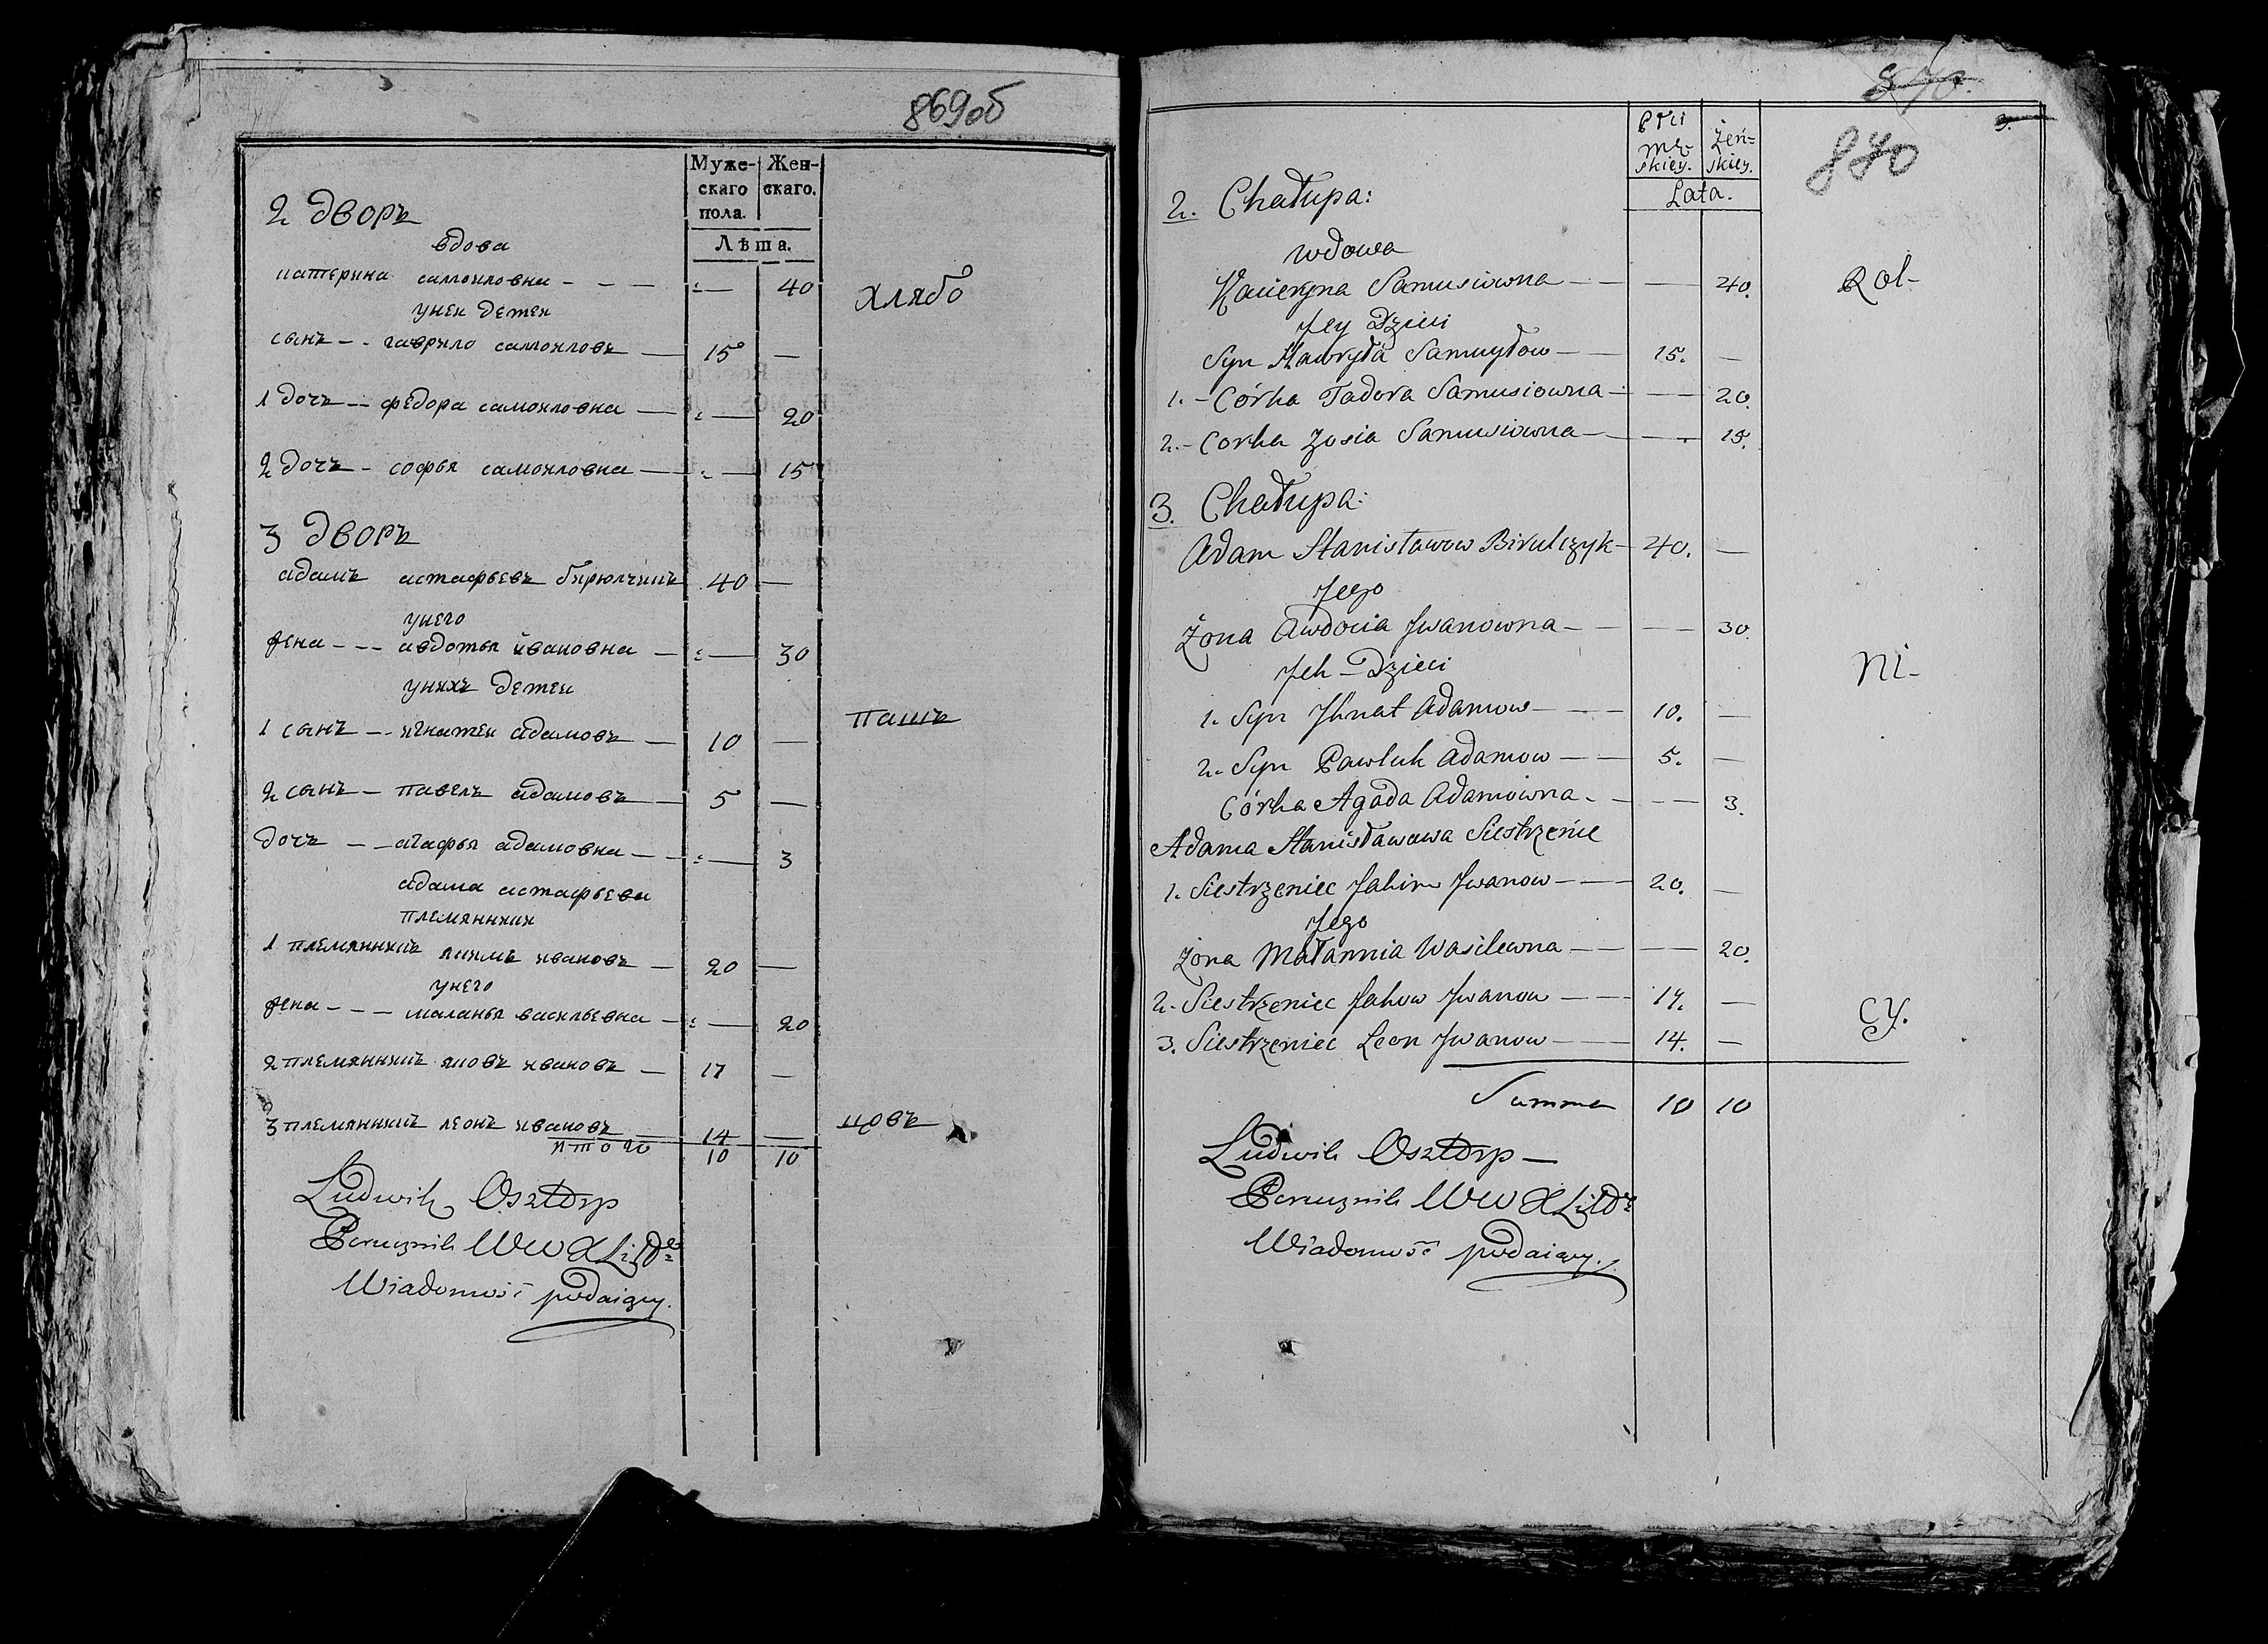 869об
Муже- Жен-
скаго скаго.
пола.
Лѣта.
2 дворъ
вдова
катерина самойловна - - - 40 хлябо
унеи детеи
сынъ - - гаврило самойловъ — 15 —
1 дочъ — федора самойловна — 20
2 дочъ - софья самойловна — 15
3 дворъ
адамъ астафьевъ бирюлчикъ 40 —
унего
жена - - - авдотья ивановна — 30
унихъ детеи
1 сынъ - - игнатеи адамовъ — 10 — пашъ
2 сынъ - павелъ адамовъ — 5 —
дочъ - - агафья адамовна - - 3
адама астафьева
племянники
1 племянникъ якимъ ивановъ — 20 —
унего
жена - - - маланья васильевна — 20
2 племянникъ яковъ ивановъ — 17 —
3 племянникъ леонъ ивановъ 14 — цовъ
итого 10 10
Ludwik Osztorp
Porucznik WWXLitd
Wiadomość podaiący.
870.
3.
870
Płci
mę- żeń-
skiey. skiey.
Lata.
2. Chałupa:
wdowa
Kacieryna Samusiowna — — 20. Rol-
Jey Dzieci
Syn Hawryła Samuyłow — 15. —
1. - Córka Tadora Samusiowna — 20.
2. - Corka Zosia Samusiowna — 15.
3. Chałupa:
Adam Stanisławow Birulczyk - 40. —
Jego
Żona Awdocia Jwanowna - — 30.
Jch - Dzieci Ni-
1. Syn Jhnat Adamow — 10. —
2. Syn Pawluk Adamow — 5. —
Córka Agada Adamowna - — 3.
Adama Stanisławawa Siestrzeńce
1. Siestrzeniec Jakim Jwanow — 20. —
Jego
Żona Małannia Wasilewna — — 20.
2. Siestrzeniec Jakow Jwanow — 17. — cy.
3. Siestrzeniec Leon Jwanow — 14. —
Summa 10 10
Ludwik Osztorp —
Porucznik WWXLitd
Wiadomość podaiący.